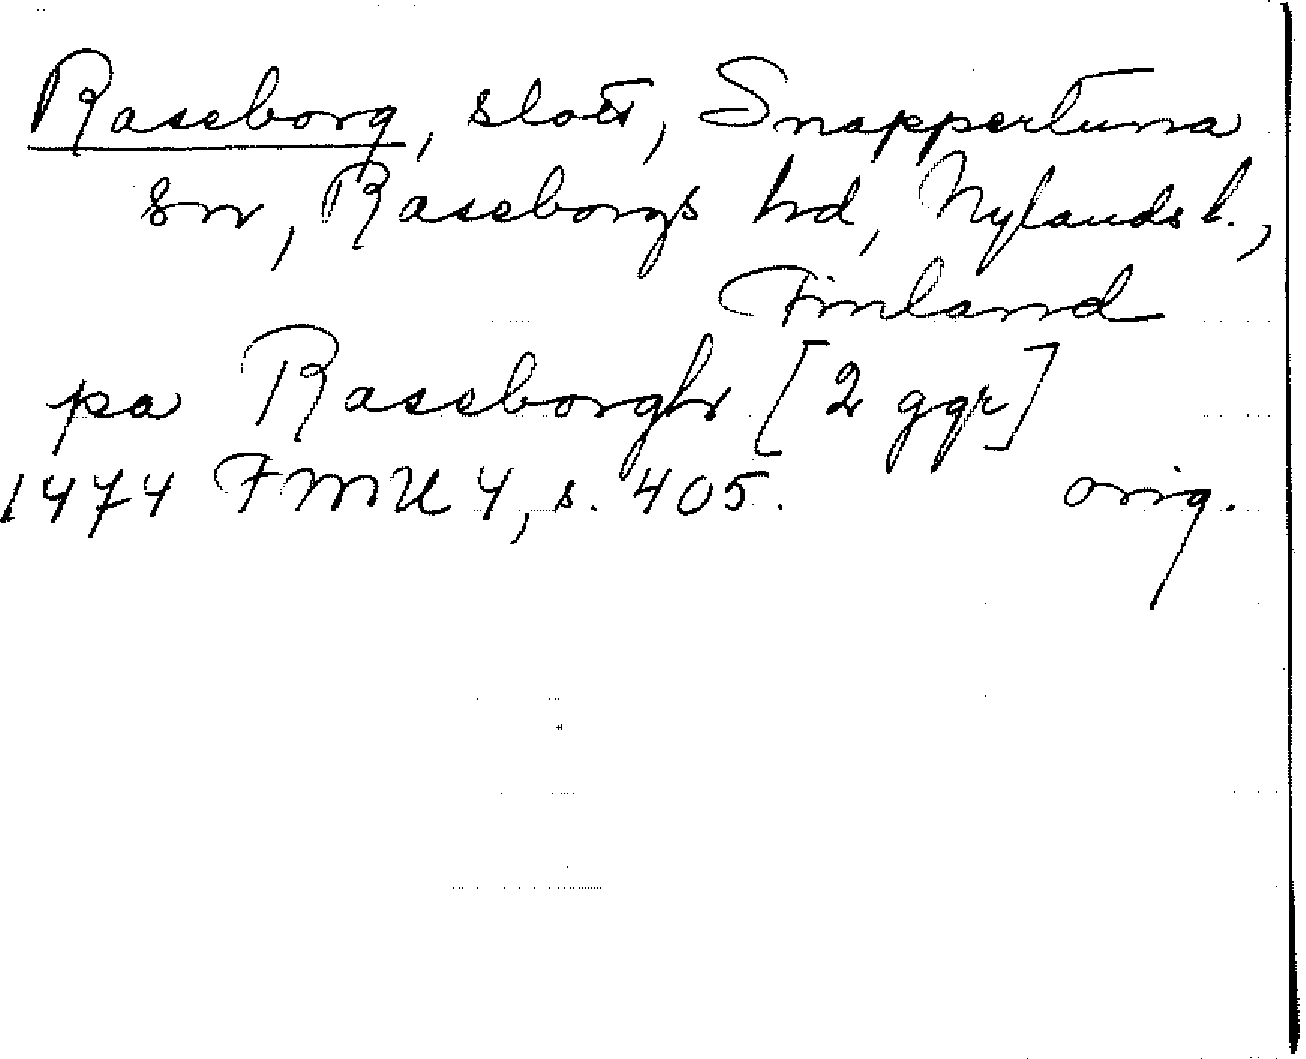 Raseborg, slott, Snappertuna
sn, Raseborgs hd, Nylands l.,
Finland
pa Rassborgh [2 ggr]
1474 FMU 4, s. 405. orig.